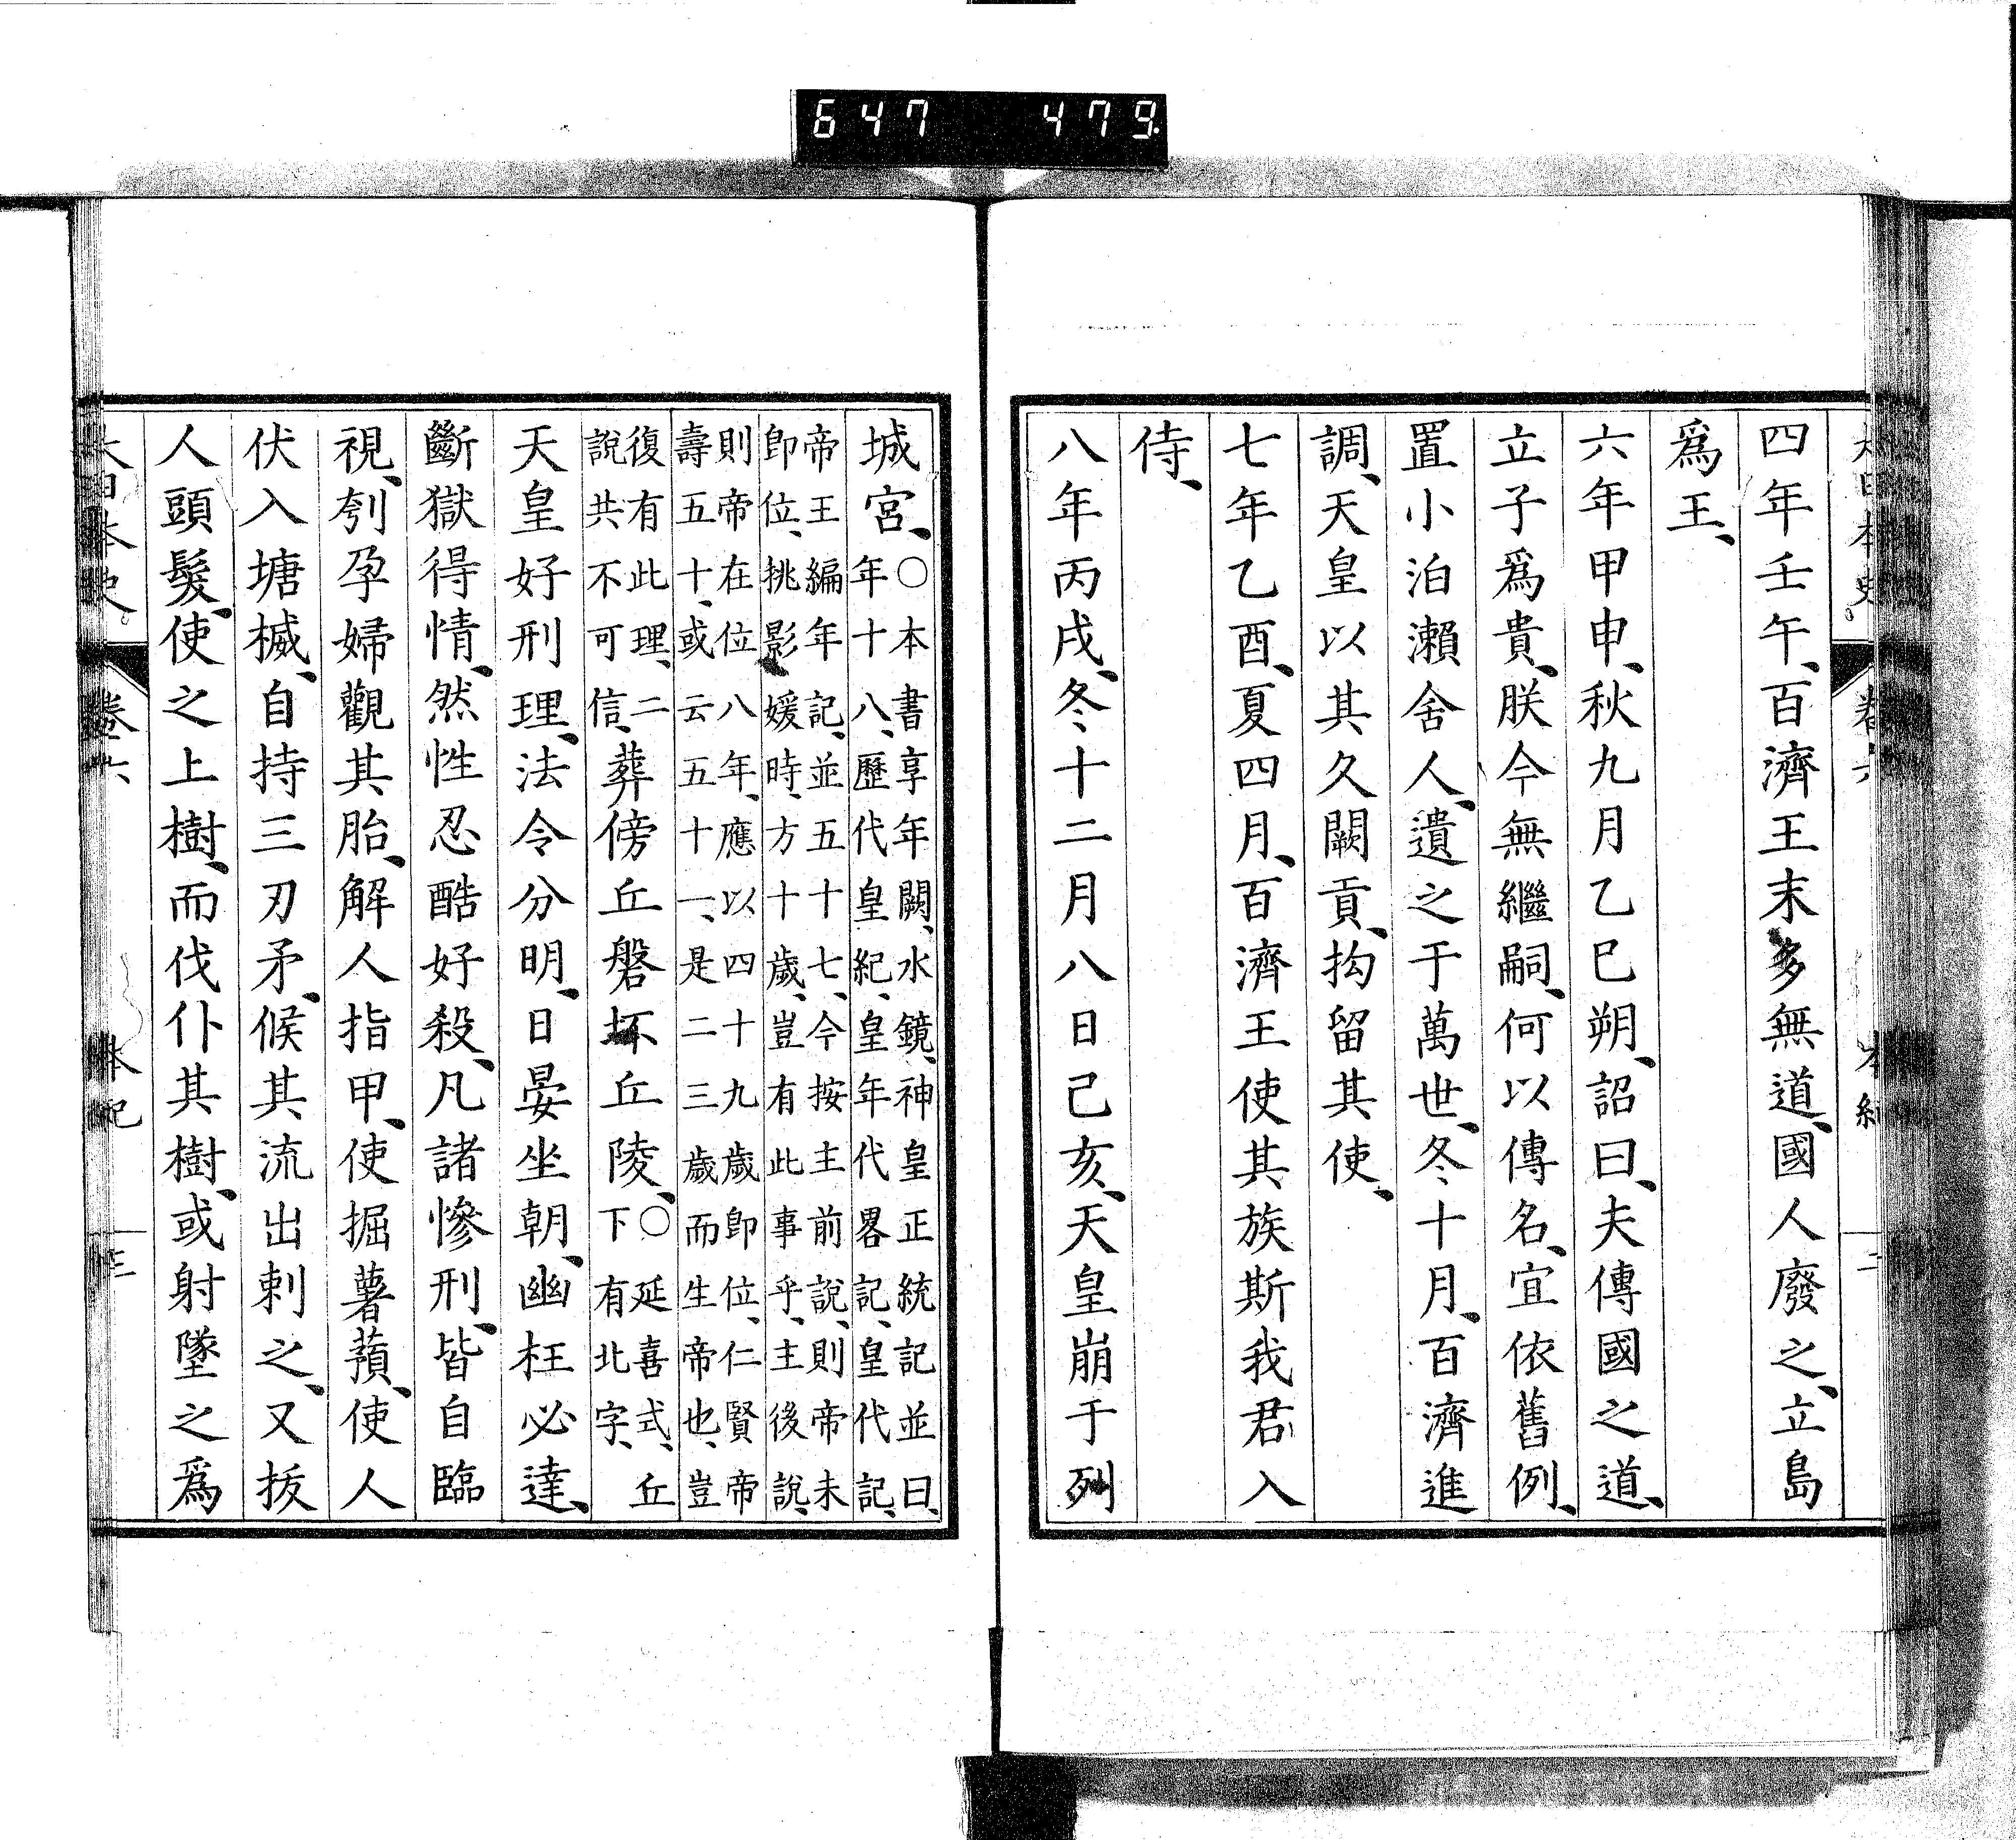 647 479
大日本史 卷六 本紀 二
四年壬午、百濟王末多無道、國人廢之、立島
爲王、
六年甲申、秋九月乙巳朔、詔曰、夫傳國之道、
立子爲貴、朕今無繼嗣、何以傳名、宜依舊例、
置小泊瀨舍人、遺之于萬世、冬十月、百濟進
調、天皇以其久闕貢、拘留其使、
七年乙酉、夏四月、百濟王使其族斯我君入
侍、
八年丙戌、冬十二月八日己亥、天皇崩于列
城宮、○本書享年闕、水鏡、神皇正統記並曰、
年十八、歷代皇紀、皇年代畧記、皇代記、
帝王編年記、並五十七、今按主前說、則帝未
卽位、挑影媛時、方十歲、豈有此事乎、主後說、
則帝在位八年、應以四十九歲卽位、仁賢帝
壽五十、或云五十一、是二三歲而生帝也、豈
復有此理、二
說共不可信、葬傍丘磐坏丘陵、○延喜式、丘
下有北字、
天皇好刑理、法令分明、日晏坐朝、幽枉必達、
斷獄得情、然性忍酷好殺、凡諸慘刑、皆自臨
視、刳孕婦觀其胎、解人指甲、使掘薯蕷、使人
伏入塘楲、自持三刃矛、候其流出刺之、又拔
人頭髮、使之上樹、而伐仆其樹、或射墜之爲
大日本史 卷六 本紀 三